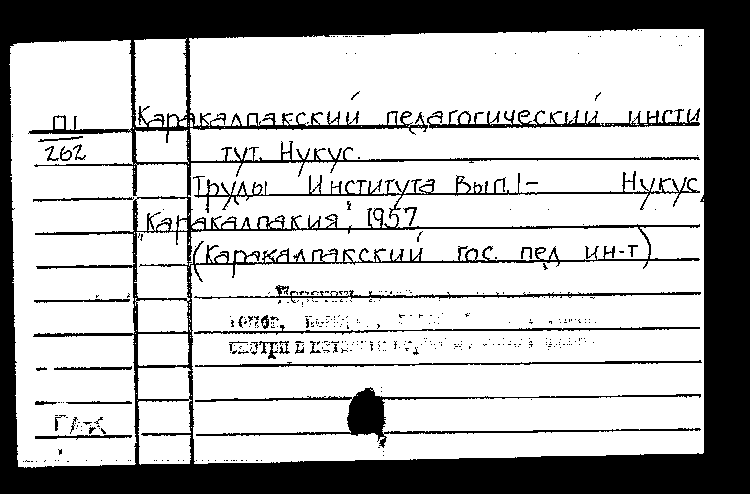 П1
262
Каракалпакский педагогический инсти
тут. Нукус.
Труды Института Вып.1– Нукус,
"Каракалпакия", 1957
(Каракалпакский гос. пед ин-т)
Перечень
томов,
смотри в